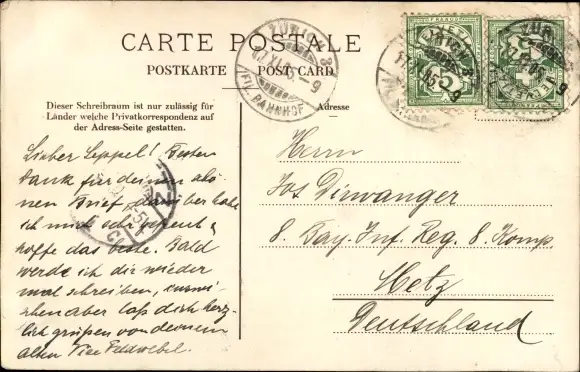 CARTE POSTALE
POSTKARTE POST CARD
Dieser Schreibraum ist nur zulässig für
Länder welche Privatkorrespondenz auf
der Adress-Seite gestatten.
Adresse
ZÜRICH 8
XI.05.-9
(FIL. BAHNHOF)
FRANCO
5
Lieber Seppel! Besten
Dank für deinen schö-
nen Brief, darüber habe
ich mich sehr gefreut &
hoffe das beste. Bald
werde ich dir wieder
mal schreiben, inzwi-
schen aber laß dich herz-
lich grüßen von deinem
alten Vice Feldwebel.
Herrn
Jos Dirwanger
8. Bay. Inf. Reg. 8. Komp.
Metz
Deutschland